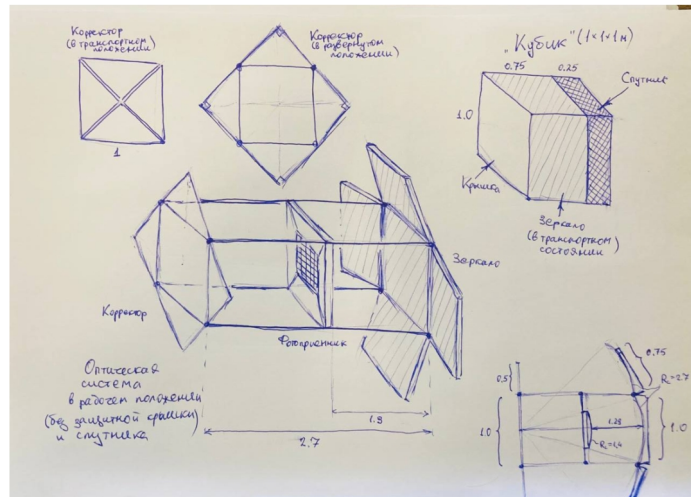 Корректор
(в транспортном
положении)
1
Корректор
(в развернутом
положении)
"Кубик" (1×1×1м)
0.75
0.25
Спутник
1.0
Крышка
Зеркало
(в транспортном
состоянии)
Корректор
Фотоприемник
Зеркало
1.3
2.7
Оптическая
система
в рабочем положении
(без защитной крышки)
и спутника
0.75
R=2.7
0.5
1.0
R=1.4
1.0